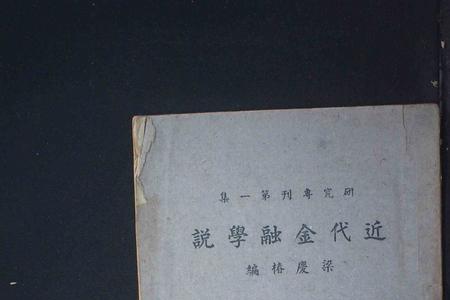 研究專刊第一集
近代金融學説
梁慶椿編